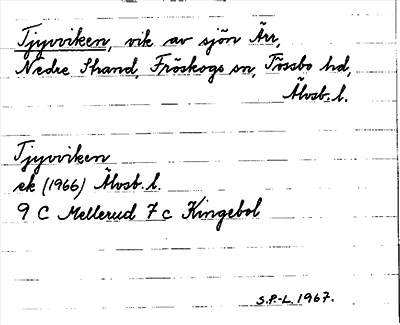 Tjyvviken, vik av sjön Ärr,
Nedre Strand, Fröskogs sn, Tössbo hd,
Älvsb. l.
Tjyvviken
ek (1966) Älvsb. l.
9 C Mellerud 7 c Kingebol
S.P.-L. 1967.